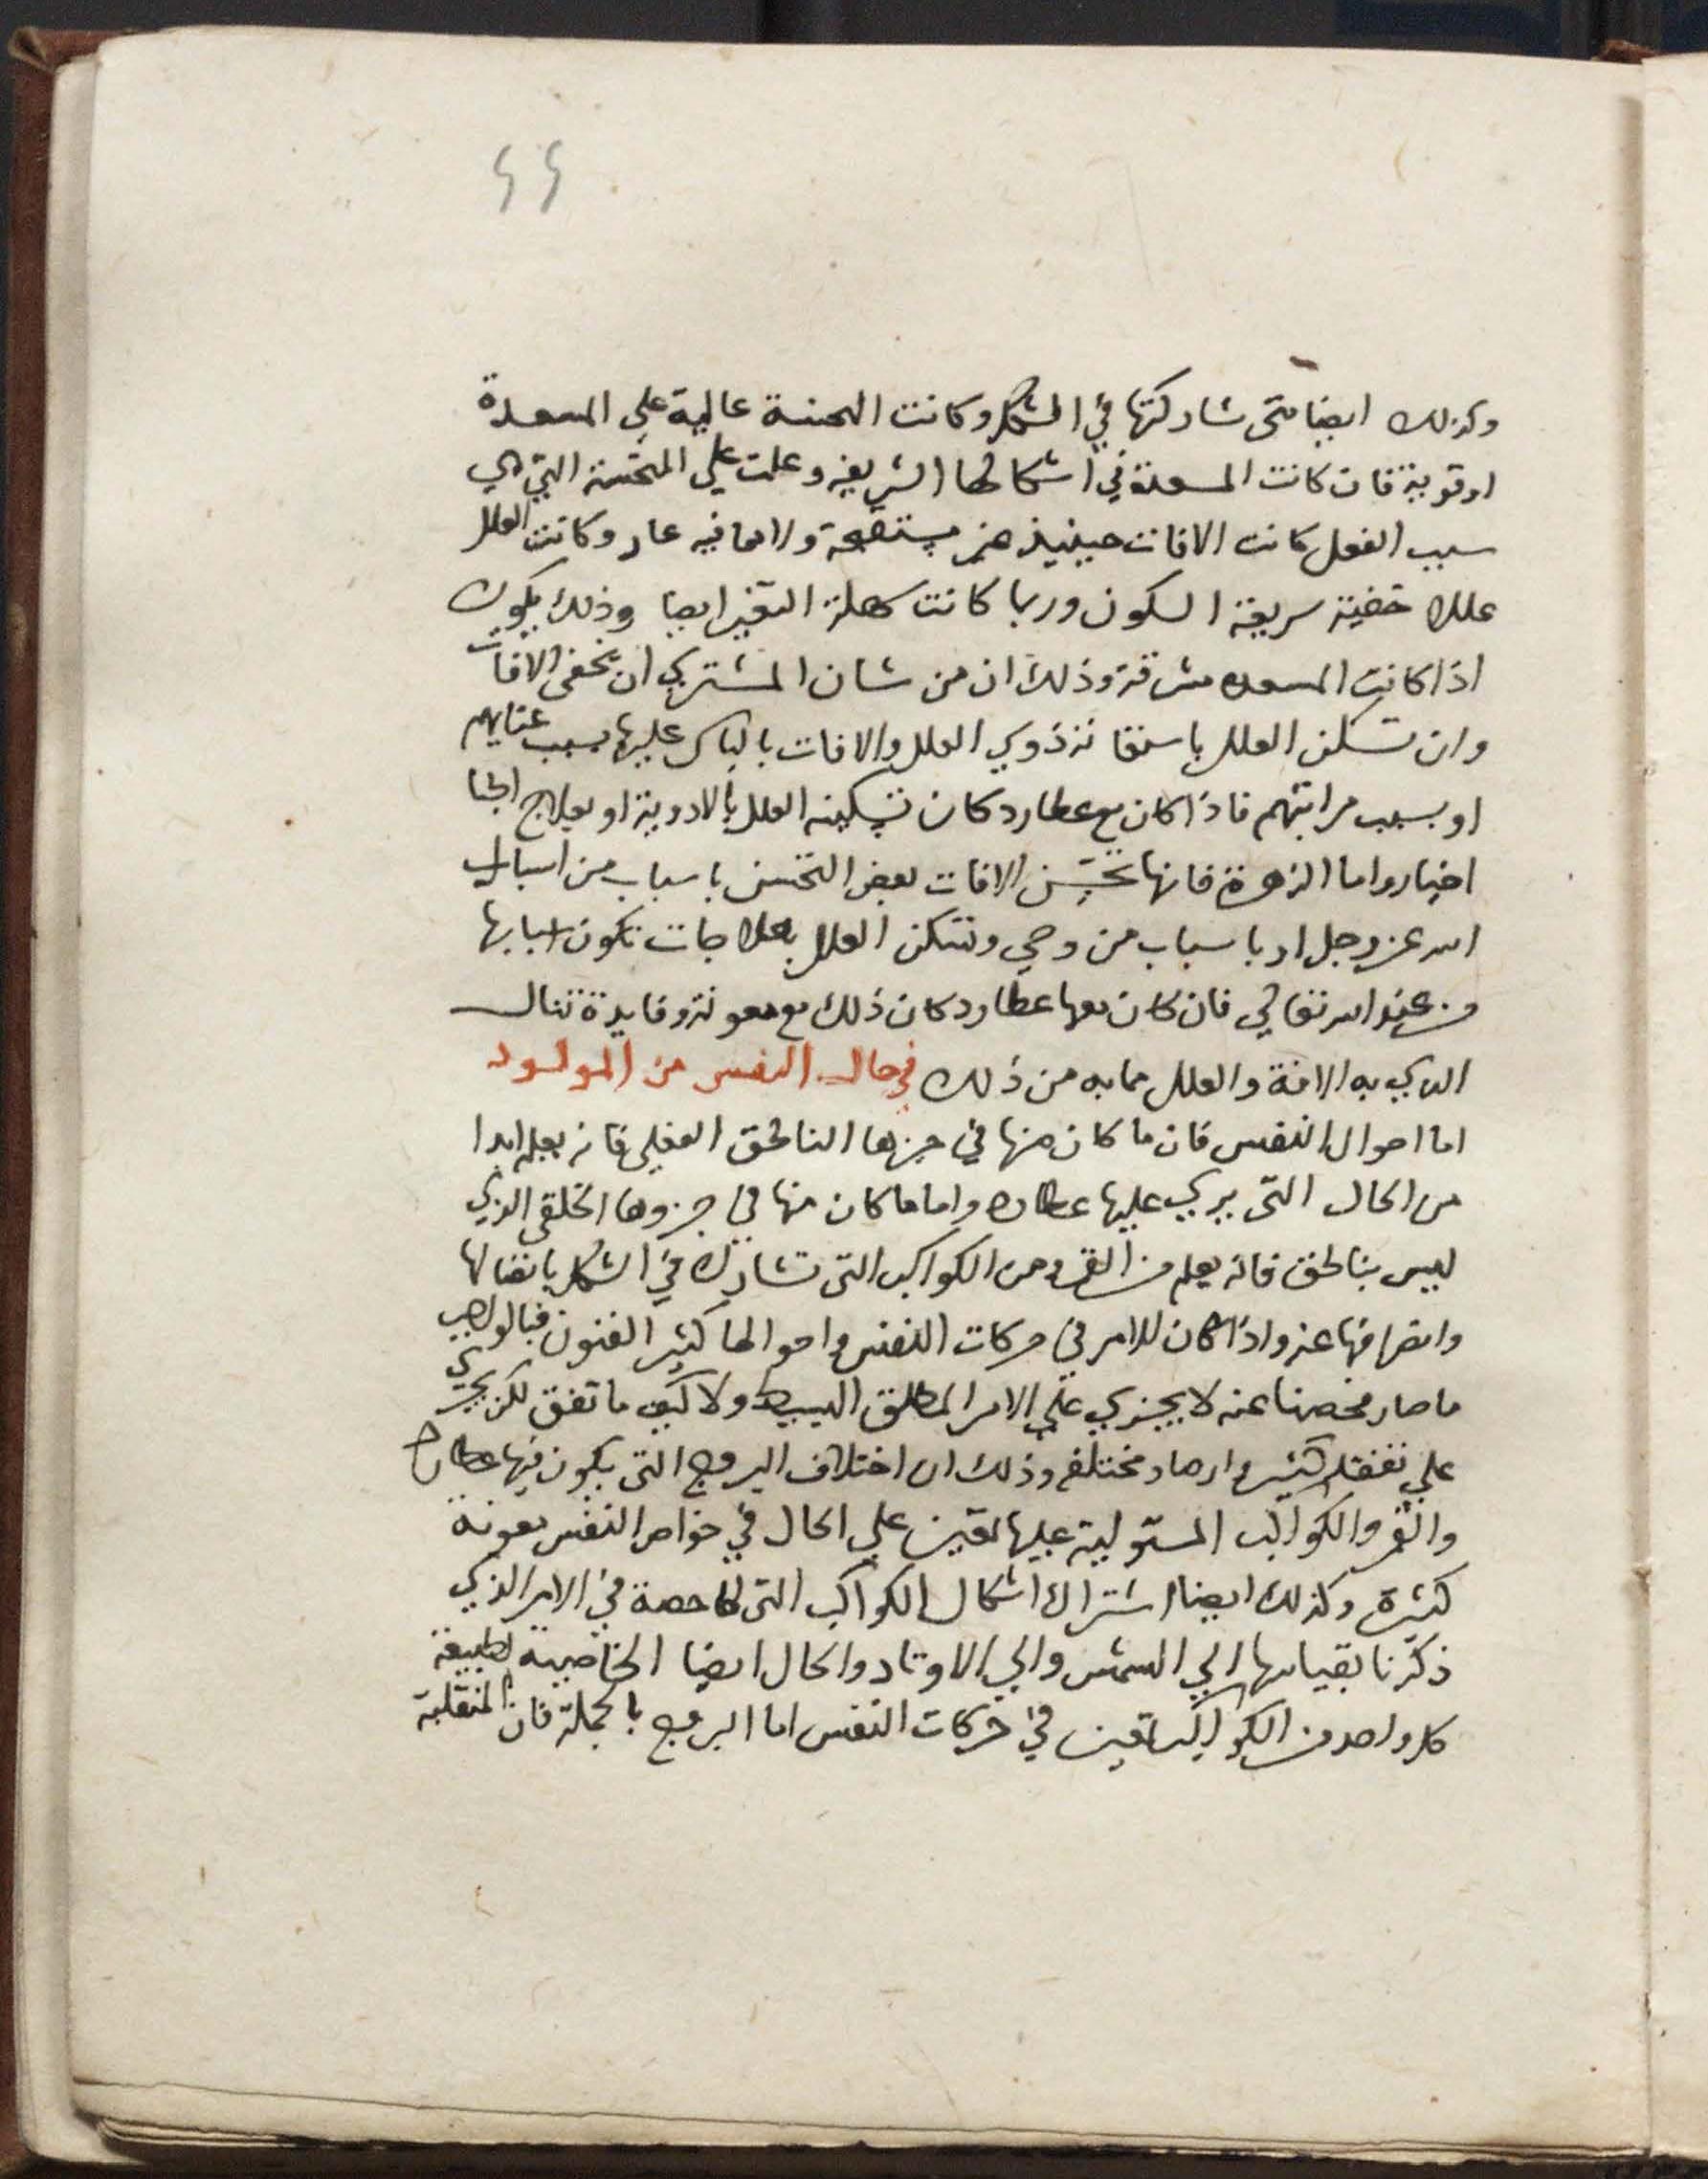 ٤٤
وكذلك ايضا متى شاركتها في الشكل وكانت المحسنة عالية علي المسعدة
او قوية فان كانت المسعدة في اشكالها الشريفة وعلت علي المنحسة التي هي
سبب الفعل كانت الافات حينيذ غير مستقبحة ولا فيه عار وكانت العلل
عللا خفية سريعة السكون وربما كانت سهلة التغير ايضا وذلك يكون
اذا كانت المسعده مشرقة وذلك ان من شان المشتري ان تخفى الافات
وان تسكن العلل باستعانة ذوي العلل والافات بالناس عليها بسبب غنايهم
او بسبب مراتبهم فاذا كان مع عطارد كان تسكينه العلل بالادوية او بعلاج اطبا
اخيار واما الزهرة فانها تحسن الافات بعض التحسن باسباب من اسباب
الله عز وجل او باسباب من وحي وتسكن العلل بعلاجات تكون اسبابها
من عند الله تعالي فان كان معها عطارد كان ذلك مع معونة وفايدة تنال
الذي به الافة والعلل مما به من ذلك في حال النفس من المولود
اما احوال النفس فان ما كان منها في جزها الناطق العقلي فانه يعلم ابدا
من الحال التي يري عليها عطارد واما ما كان منها في جزوها الخلقي الذي
ليس بناطق فانه يعلم من القمر ومن الكواكب التي تشاركه في الشكل باتصالها
وانصرافها عنه واذا كان الامر في حركات النفس واحوالها كثير الفنون فبالواجب
ما صار فحصنا عنه لا يجري علي الامر المطلق البسيط ولا كيف ما تفق لكن يجري
علي تفقد كثير وارصاد مختلفه وذلك ان اختلاف البروج التي يكون فيها عطارد
والقمر والكواكب المستولية عليها تعين علي الحال في خواص النفس معونة
كثيرة وكذلك ايضا اشتراك اشكال الكواكب التي لها حصة في الامر الذي
ذكرنا بقياسها الي الشمس والي الاوتاد والحال ايضا الخاصية لطبيعة
كل واحد من الكواكب تعين في حركات النفس اما البروج بالجملة فان المنقلبة